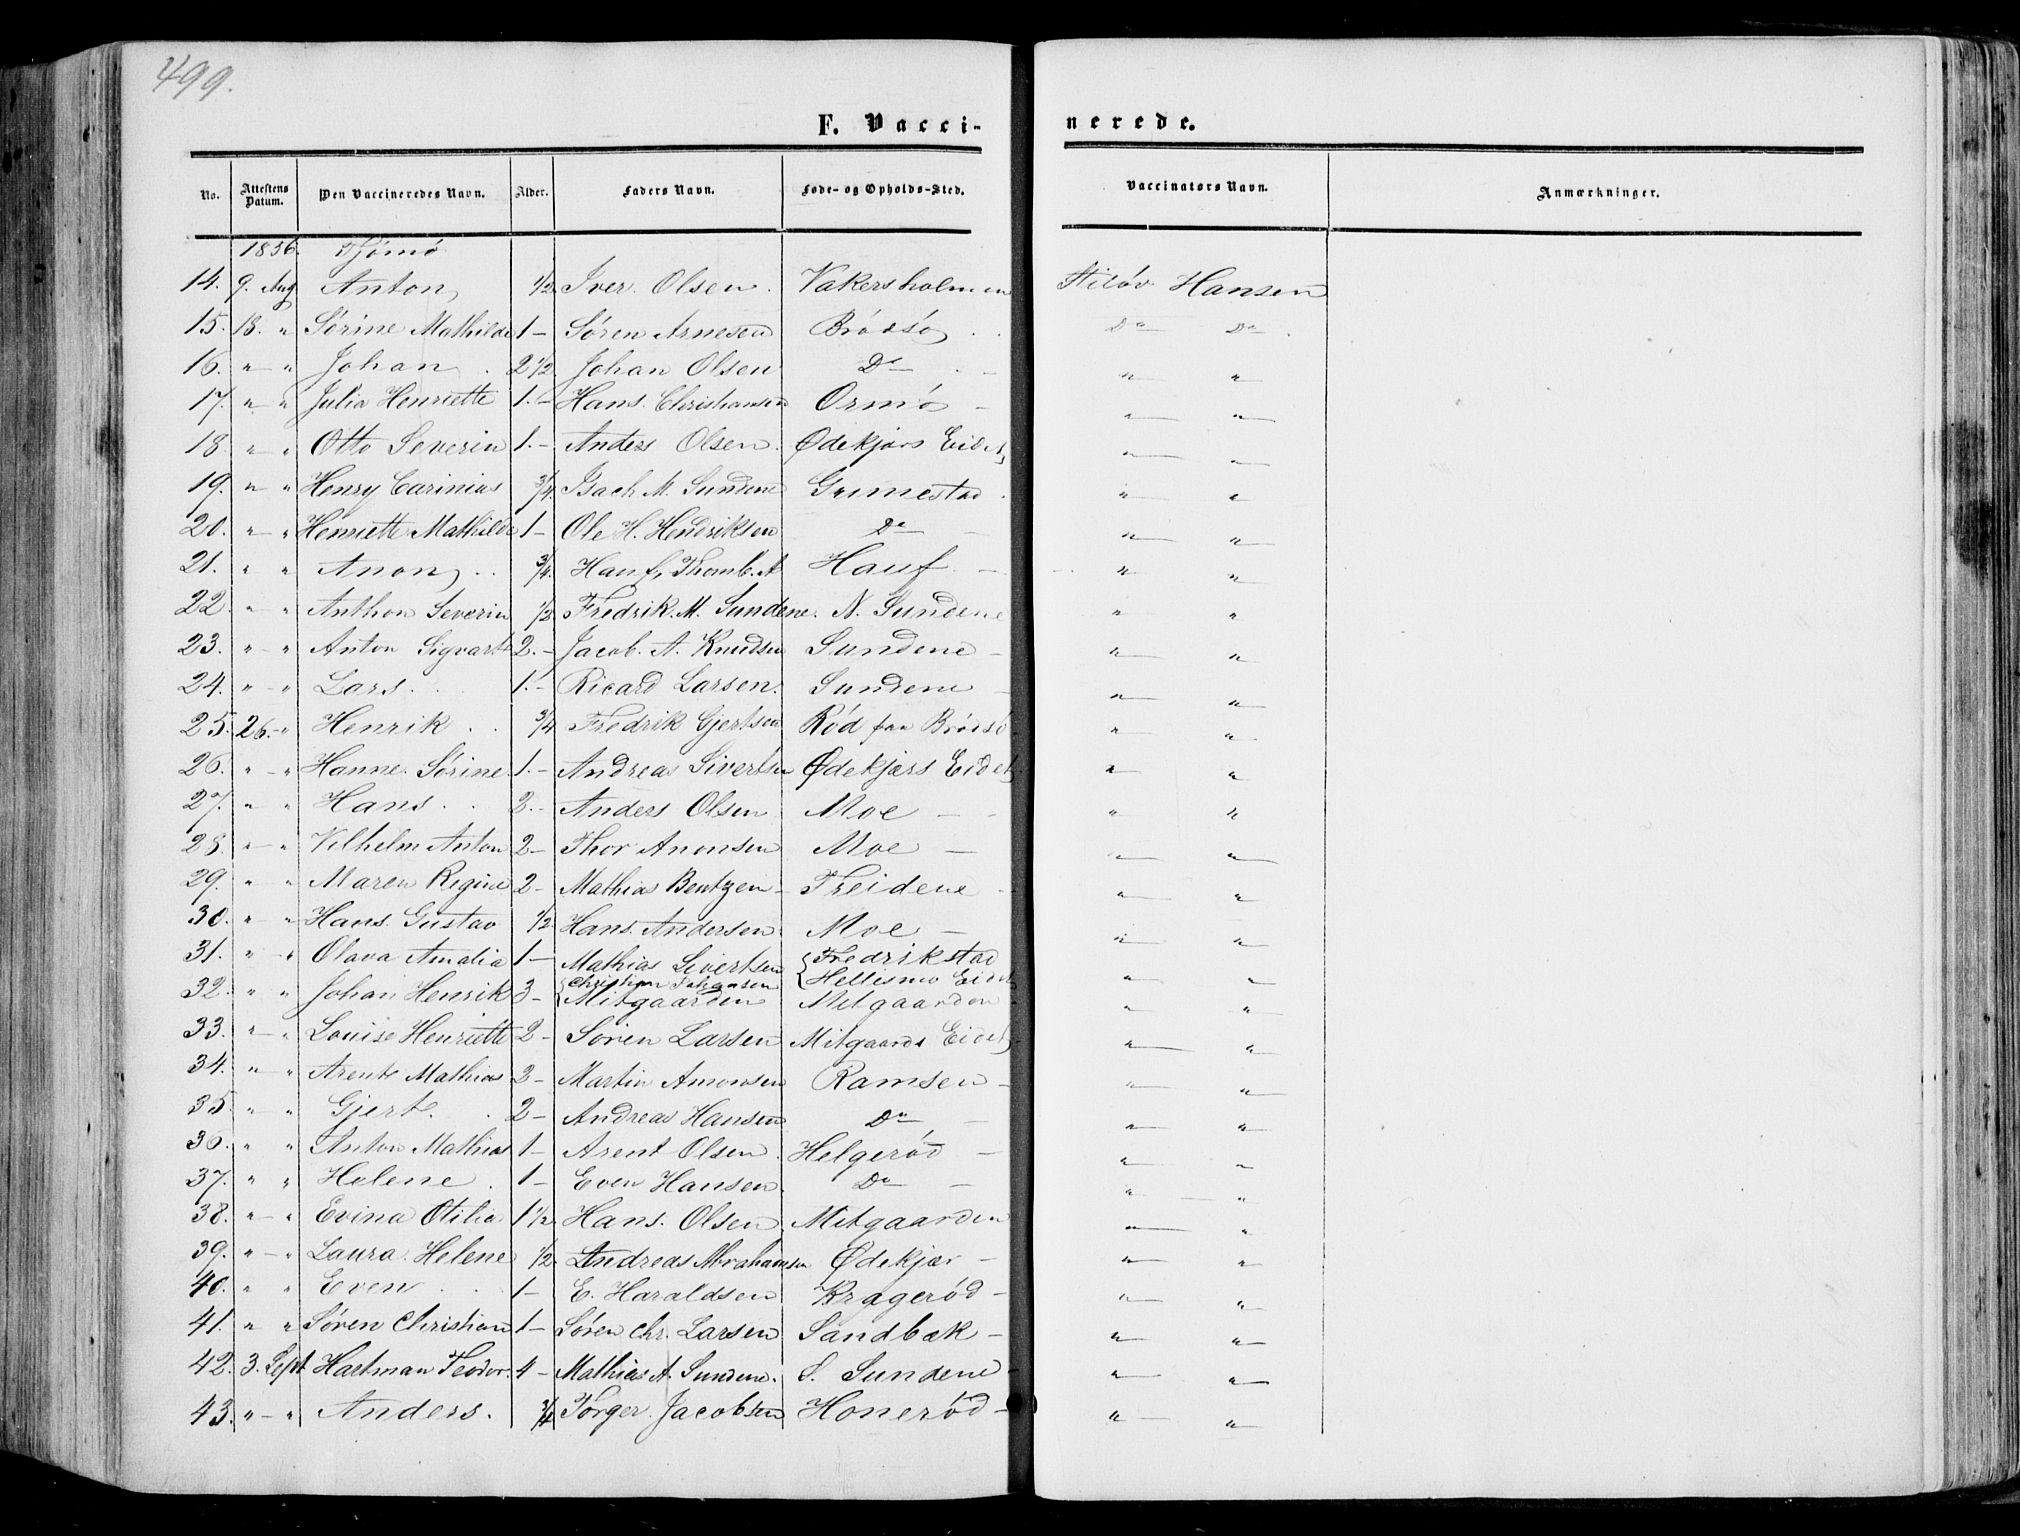 499.
F. Vacci- nerede.
No. Attestens Datum. Den Vaccineredes Navn. Alder. Faders Navn. Føde- og Opholds-Sted. Vaccinators Navn. Anmærkninger.
1856. Tjømø
14. 9. Aug Anton 1/2. Iver Olsen. Vakersholmen Hansen
15. 18. " Sørine Mathilde 1 - Søren Arnesen Brødsø Do Do
16. " " Johan 2 1/2 Johan Olsen Do " "
17. " " Julia Henriette 1. - Hans Christiansen Ormø - " "
18. " " Otto Severin 1. - Anders Olsen Ødekjærs Eidet " "
19. " " Henry Carinius 3/4 Isach M. Sundene Grimestad " "
20. " " Henriette Mathilde 1 - Ole H. Hendriksen Do " "
21. " " Anon 3/4. Hauf - " "
22. " " Anthon Severin 1/2 Fredrik M. Sundene. N. Sundene " "
23. " " Anton Sigvart 2. - Jacob A. Knudsen Sundene - " "
24. " " Lars. 1. - Ricard Larsen. Sundene - " "
25. 26. " Henrik 3/4 Fredrik Gjertsen Rød paa Brødsø " "
26. " " Hanne Sørine 1. - Andreas Sivertsen Ødekjærs Eidet " "
27. " " Hans. 2. - Anders Olsen Moe - " "
28. " " Vilhelm Anton 2 - Thor Anonsen Moe - " "
29. " " Maren Regine 2 - Mathias Bentzen - Treidene - " "
30. " " Hans Gustav 1/2 Hans Andersen Moe - " "
31. " " Olava Amalia 1 - Mathias Sivertsen { Fredrikstad Hellismo Eidet " "
32. " " Johan Henrik 3 - { Christian Johansen Mitgaarden Mitgaarden " "
33. " " Louise Henriette 2 - Søren Larsen Mitgaards Eidet " "
34. " " Arent Mathias 3 - Martin Amonsen Ramsen - " "
35. " " Gjert. 2 - Andreas Hansen Do - " "
36. " " Anton Mathias 1 - Arent Olsen Helgerød - " "
37. " " Helene 1 - Even Hansen Do - " "
38. " " Evina Otilia 1 1/2 Hans Olsen Mitgaarden " "
39. " " Laura Helene 1/2. Andreas Abrahamsen Ødekjær - " "
40. " " Even 1 - E. Haraldsen Kragerød - " "
41. " " Søren Christian 1 - Søren Chr. Larsen Sandbæk - " "
42. 3. Sept Hartman Teodor. 4 - Mathias A. Sundene. S. Sundene - " "
43. " " Anders. 3/4 Torger Jacobsen Honerød - " "